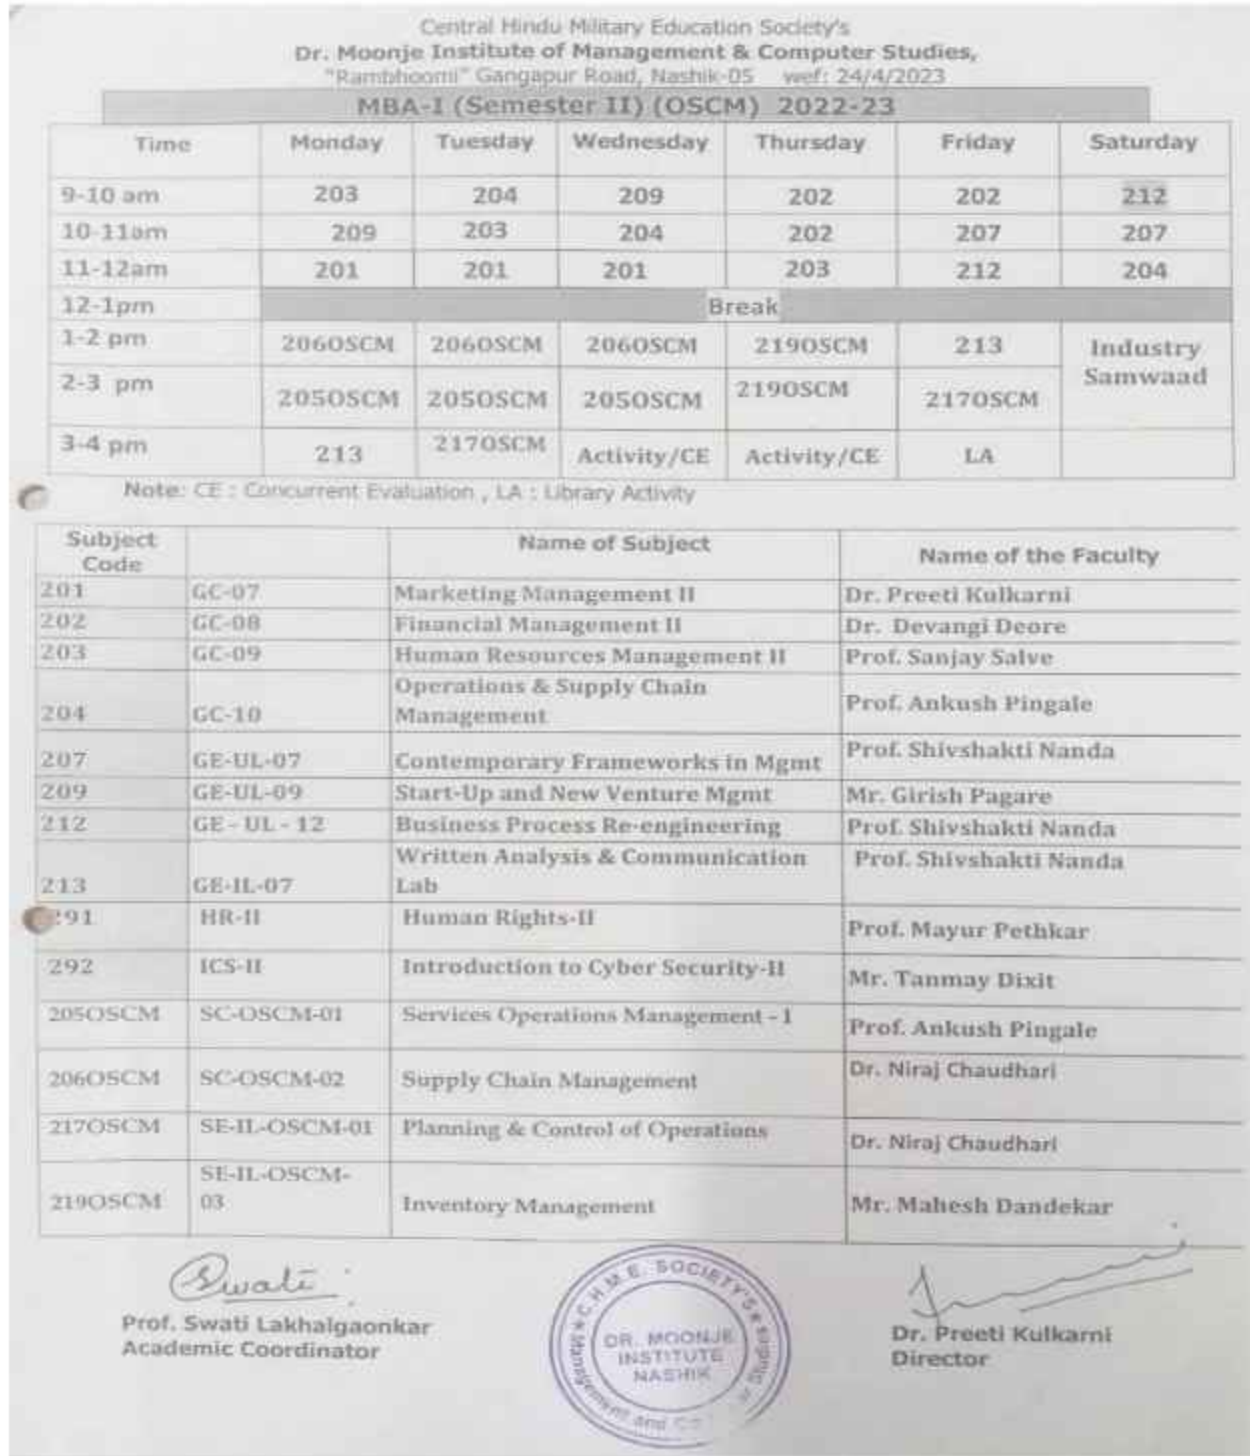 Central Hindu Military Education Society's
Dr. Moonje Institute of Management & Computer Studies,
"Rambhoomi" Gangapur Road, Nashik-05 wef: 24/4/2023
MBA-I (Semester II) (OSCM) 2022-23
Time Monday Tuesday Wednesday Thursday Friday Saturday
9-10 am 203 204 209 202 202 212
10-11am 209 203 204 202 207 207
11-12am 201 201 201 203 212 204
12-1pm Break
1-2 pm 206OSCM 206OSCM 206OSCM 219OSCM 213 Industry Samwaad
2-3 pm 205OSCM 205OSCM 205OSCM 219OSCM 217OSCM
3-4 pm 213 217OSCM Activity/CE Activity/CE LA
Note: CE : Concurrent Evaluation , LA : Library Activity
Subject Code Name of Subject Name of the Faculty
201 GC-07 Marketing Management II Dr. Preeti Kulkarni
202 GC-08 Financial Management II Dr. Devangi Deore
203 GC-09 Human Resources Management II Prof. Sanjay Salve
204 GC-10 Operations & Supply Chain Management Prof. Ankush Pingale
207 GE-UL-07 Contemporary Frameworks in Mgmt Prof. Shivshakti Nanda
209 GE-UL-09 Start-Up and New Venture Mgmt Mr. Girish Pagare
212 GE - UL - 12 Business Process Re-engineering Prof. Shivshakti Nanda
213 GE-IL-07 Written Analysis & Communication Lab Prof. Shivshakti Nanda
291 HR-II Human Rights-II Prof. Mayur Pethkar
292 ICS-II Introduction to Cyber Security-II Mr. Tanmay Dixit
205OSCM SC-OSCM-01 Services Operations Management - I Prof. Ankush Pingale
206OSCM SC-OSCM-02 Supply Chain Management Dr. Niraj Chaudhari
217OSCM SE-IL-OSCM-01 Planning & Control of Operations Dr. Niraj Chaudhari
219OSCM SE-IL-OSCM-03 Inventory Management Mr. Mahesh Dandekar
Swati
Prof. Swati Lakhalgaonkar
Academic Coordinator
C.H.M.E. SOCIETY'S
DR. MOONJE
INSTITUTE
NASHIK
Management and
Dr. Preeti Kulkarni
Director